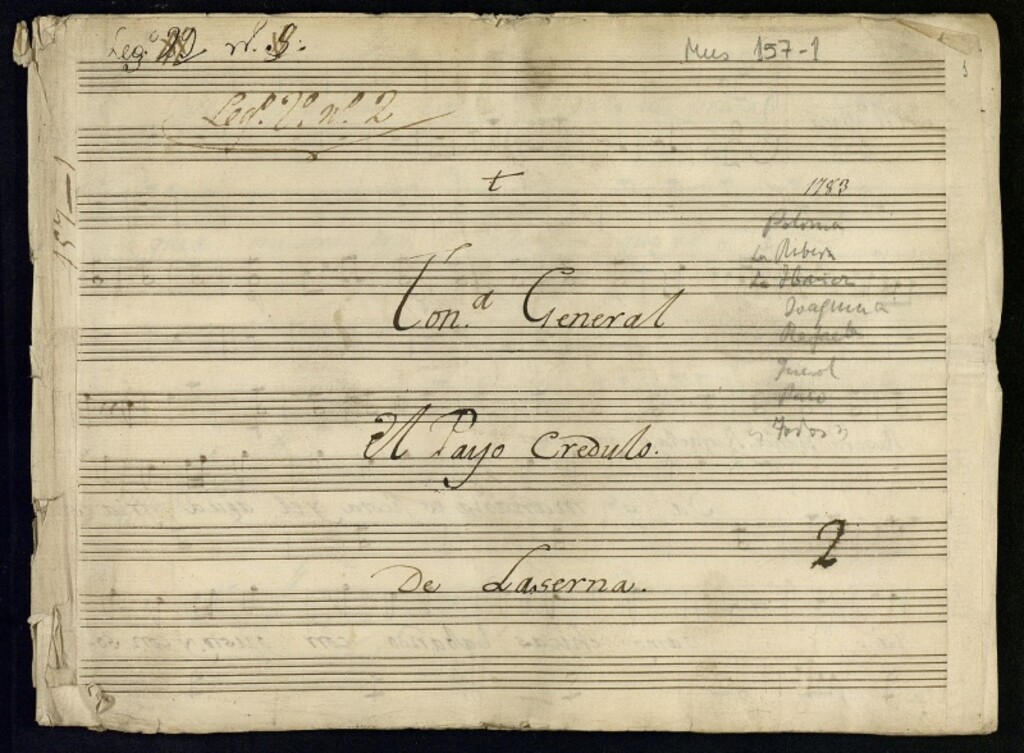 Leg.º 22 nº. 9.
Mus 157-1
Leg.º 2.º n.º 2
t
1783
Polonia
La Ribera
La Ibañez
Joaquina
Rafaela
Querol
Paco
y todos
157-1
Ton.ª General
El Payo Credulo.
2
De Laserna.